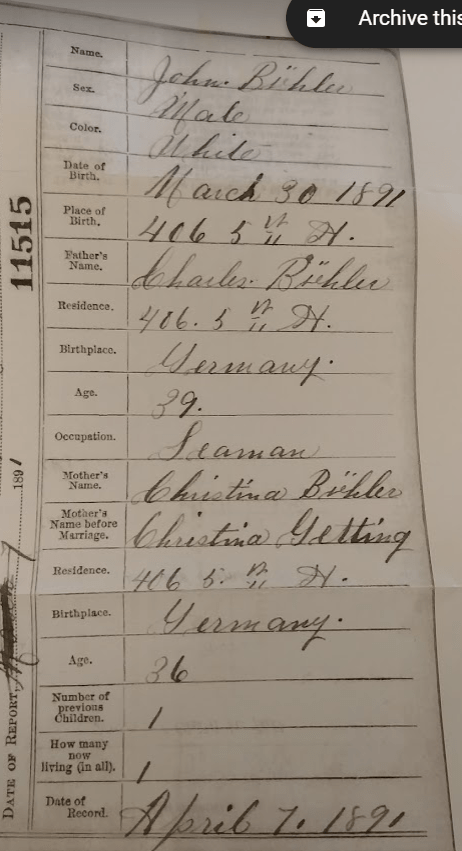 Archive this
Name. John. Bühler
Sex. Male
Color. White
Date of Birth. March 30 1891
Place of Birth. 406 5th St.
Father's Name. Charles. Bühler
Residence. 406. 5th St.
Birthplace. Germany.
Age. 39.
Occupation. Seaman
Mother's Name. Christina Bühler
Mother's Name before Marriage. Christina Getting
Residence. 406 5.th St.
Birthplace. Germany.
Age. 36
Number of previous Children. 1
How many now living (in all). 1
Date of Record. April 7. 1891
11515
DATE OF REPORT, 7 1891